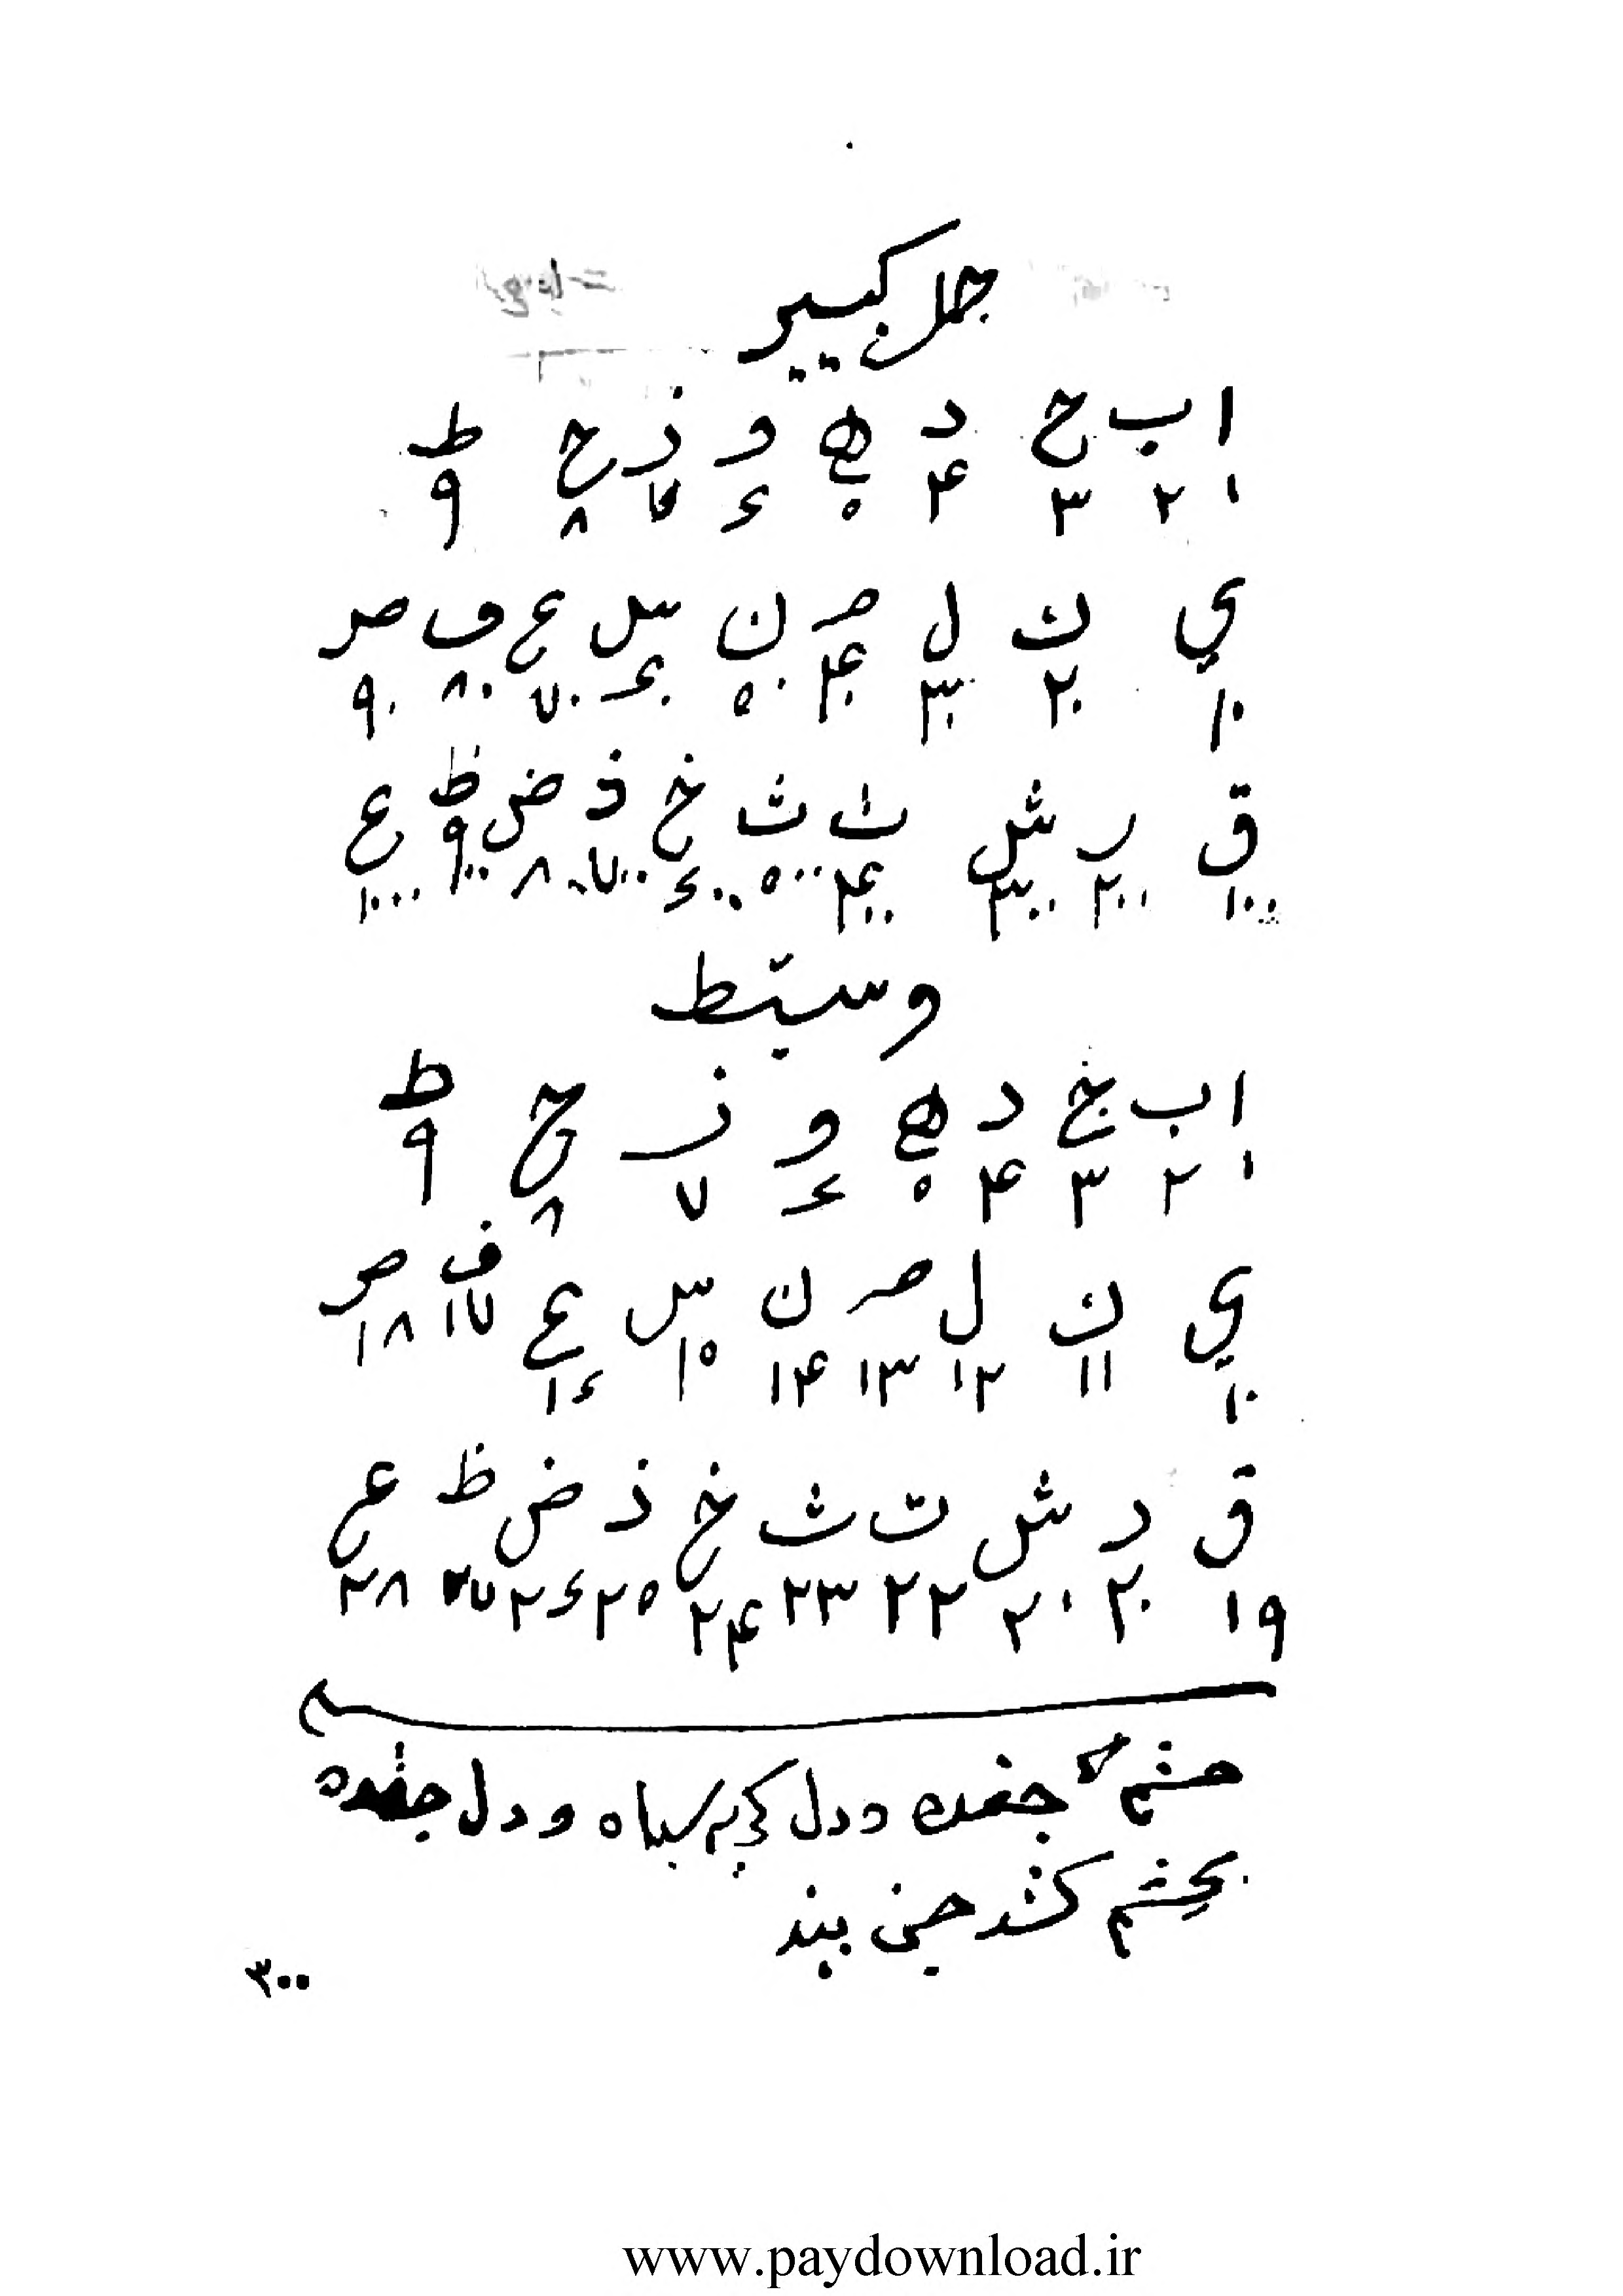 جمل کبیر
ا ب ج د ه و ز ح ط
۱ ۲ ۳ ۴ ۵ ۶ ۷ ۸ ۹
ی ک ل م ن س ع ف ص
۱۰ ۲۰ ۳۰ ۴۰ ۵۰ ۶۰ ۷۰ ۸۰ ۹۰
ق ر ش ت ث خ ذ ض ظ ع
۱۰۰ ۲۰۰ ۳۰۰ ۴۰۰ ۵۰۰ ۶۰۰ ۷۰۰ ۸۰۰ ۹۰۰ ۱۰۰۰
وسیط
ا ب ج د ه و ز ح ط
۱ ۲ ۳ ۴ ۵ ۶ ۷ ۸ ۹
ی ک ل م ن س ع ف ص
۱۰ ۱۱ ۱۲ ۱۳ ۱۴ ۱۵ ۱۶ ۱۷ ۱۸
ق ر ش ت ث خ ذ ض ظ ع
۱۹ ۲۰ ۲۰ ۲۲ ۲۳ ۲۴ ۲۵ ۲۶ ۲۷ ۲۸
چشم جغد و دل گربه سیاه و دل جغد
بچشم کشد جنی بیند
۳۰۰
www.paydownload.ir